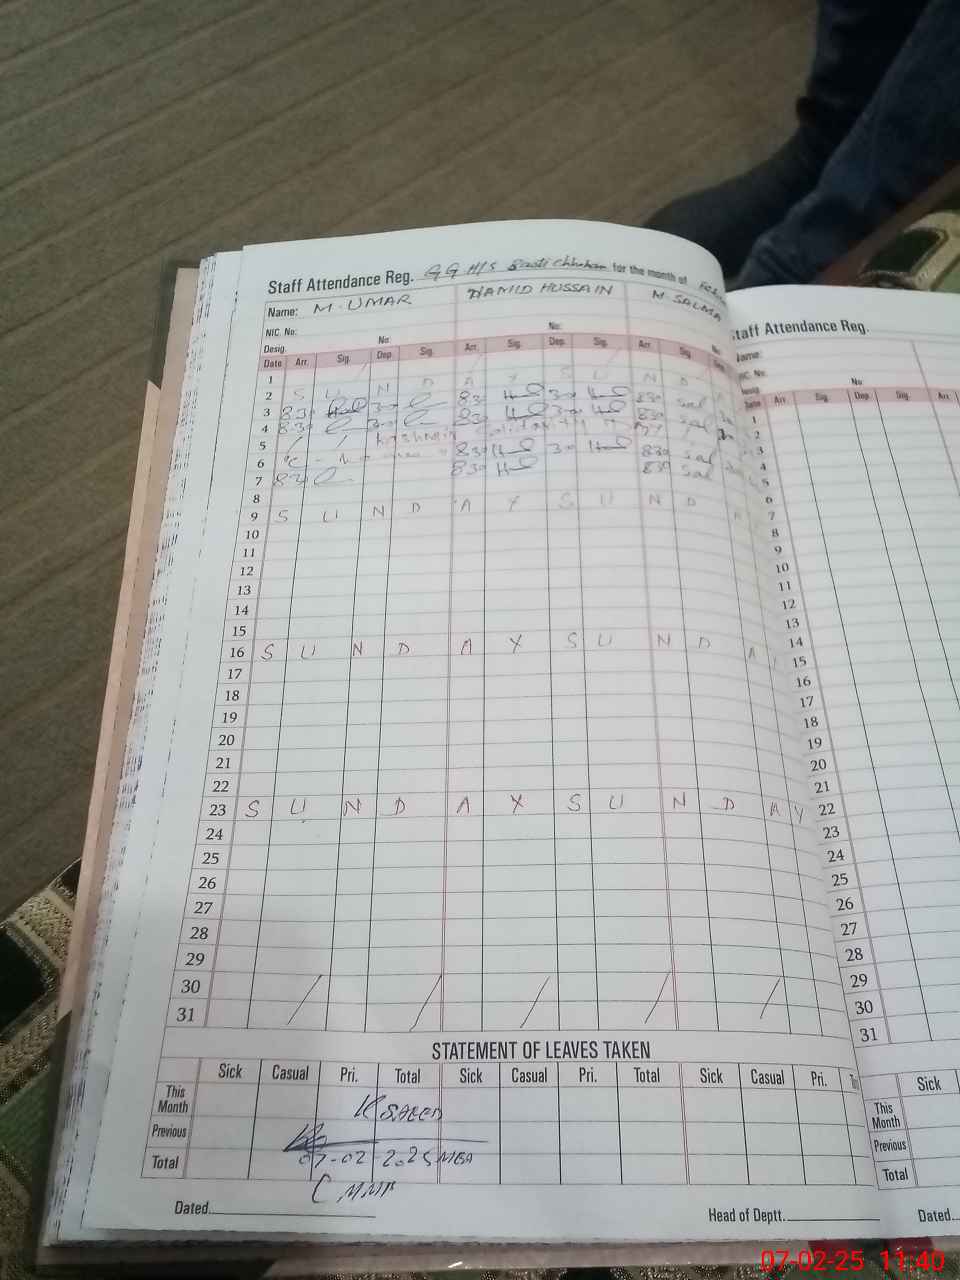 Staff Attendance Reg. GG H/S Basti Chhuhan for the month of
Name: M. UMAR HAMID HUSSAIN M. SALMA
NIC. No:
Desig. No: No: No:
Date Arr. Sig. Dep. Sig. Arr. Sig. Dep. Sig. Arr. Sig.
1
2 S U N D A Y S U N D
3 830 300 830 300 830
4 830 300 830 300 830
5 Kashmir Solidarity Day
6 830 300 830
7 830 830 830
8
9 S U N D A Y S U N D A
10
11
12
13
14
15
16 S U N D A Y S U N D A
17
18
19
20
21
22
23 S U N D A Y S U N D A Y
24
25
26
27
28
29
30
31
STATEMENT OF LEAVES TAKEN
Sick Casual Pri. Total Sick Casual Pri. Total Sick Casual Pri.
This Month
Previous
Total
K SAEED
07-02-2025 MEA
Dated. Head of Deptt.
Staff Attendance Reg.
Name:
NIC. No.
Desig. No:
Date Arr. Sig. Dep. Sig. Arr.
1
2
3
4
5
6
7
8
9
10
11
12
13
14
15
16
17
18
19
20
21
22
23
24
25
26
27
28
29
30
31
Sick
This Month
Previous
Total
Dated.
07-02-25 11:40